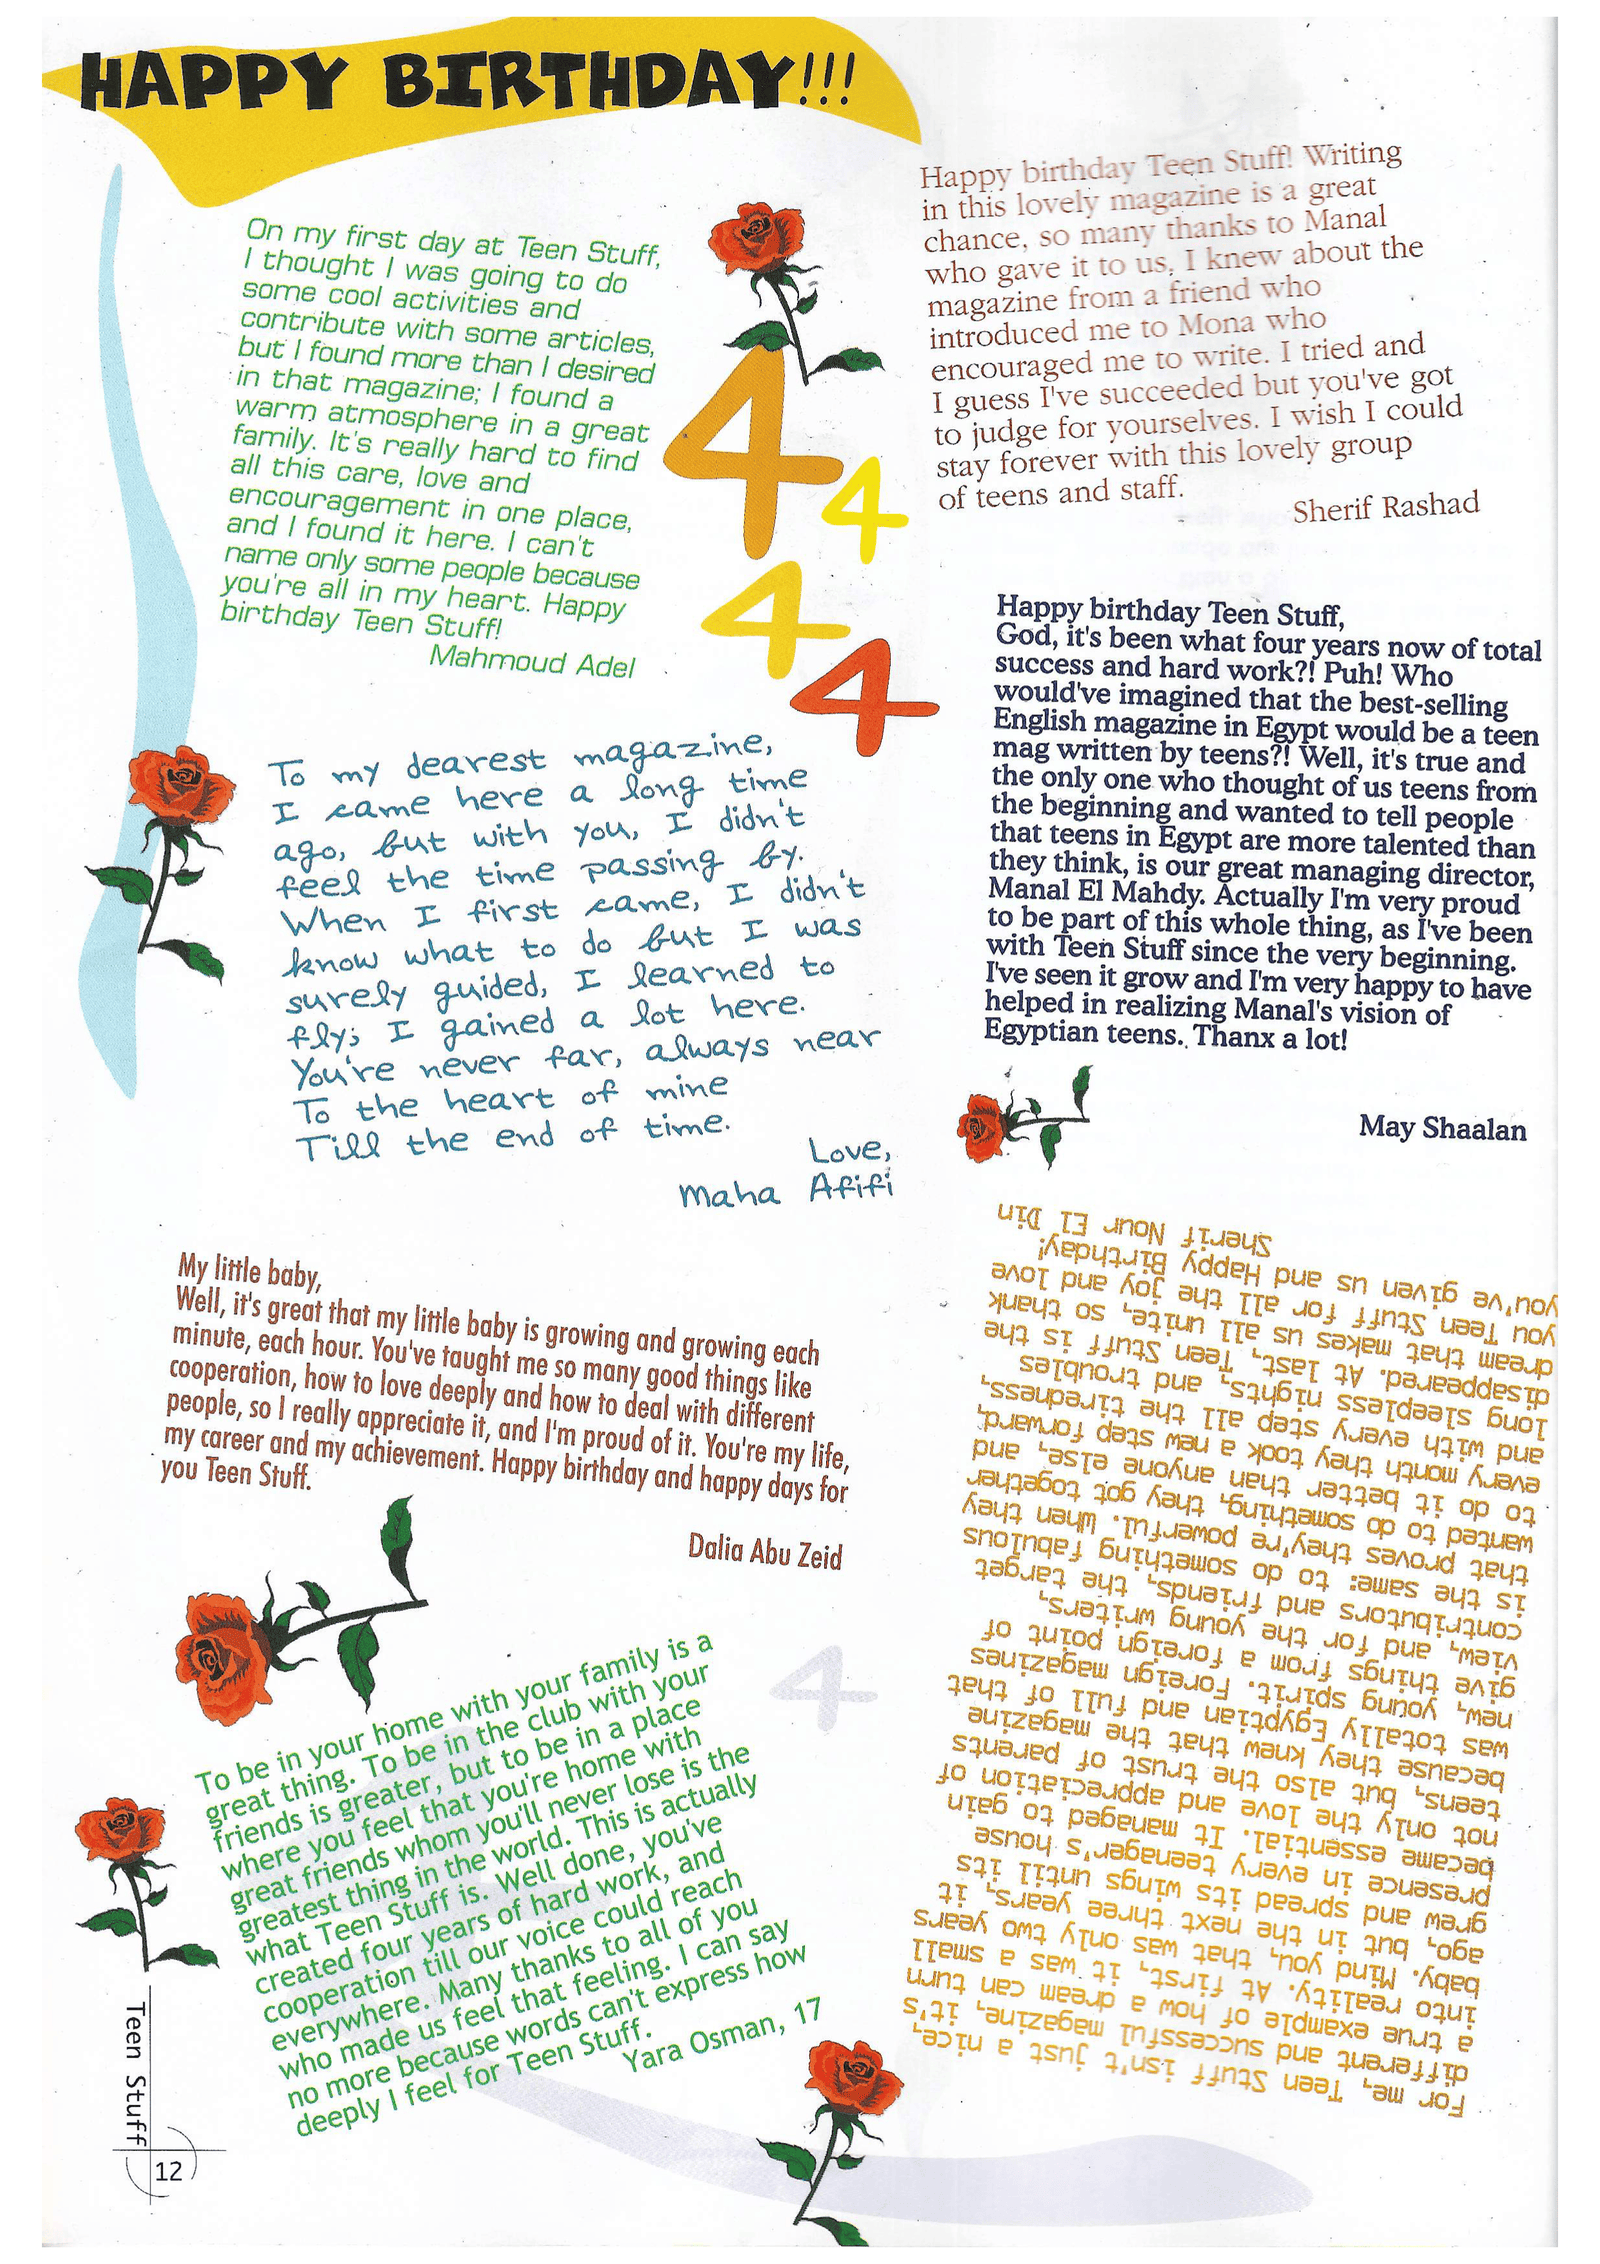 HAPPY BIRTHDAY!!!
On my first day at Teen Stuff,
I thought I was going to do
some cool activities and
contribute with some articles,
but I found more than I desired
in that magazine; I found a
warm atmosphere in a great
family. It's really hard to find
all this care, love and
encouragement in one place,
and I found it here. I can't
name only some people because
you're all in my heart. Happy
birthday Teen Stuff!
Mahmoud Adel
4
4
4
4
Happy birthday Teen Stuff! Writing
in this lovely magazine is a great
chance, so many thanks to Manal
who gave it to us, I knew about the
magazine from a friend who
introduced me to Mona who
encouraged me to write. I tried and
I guess I've succeeded but you've got
to judge for yourselves. I wish I could
stay forever with this lovely group
of teens and staff.
Sherif Rashad
Happy birthday Teen Stuff,
God, it's been what four years now of total
success and hard work?! Puh! Who
would've imagined that the best-selling
English magazine in Egypt would be a teen
mag written by teens?! Well, it's true and
the only one who thought of us teens from
the beginning and wanted to tell people
that teens in Egypt are more talented than
they think, is our great managing director,
Manal El Mahdy. Actually I'm very proud
to be part of this whole thing, as I've been
with Teen Stuff since the very beginning.
I've seen it grow and I'm very happy to have
helped in realizing Manal's vision of
Egyptian teens. Thanx a lot!
May Shaalan
To my dearest magazine,
I came here a long time
ago, but with you, I didn't
feel the time passing by.
When I first came, I didn't
know what to do but I was
surely guided, I learned to
fly; I gained a lot here.
You're never far, always near
To the heart of mine
Till the end of time.
Love,
Maha Afifi
My little baby,
Well, it's great that my little baby is growing and growing each
minute, each hour. You've taught me so many good things like
cooperation, how to love deeply and how to deal with different
people, so I really appreciate it, and I'm proud of it. You're my life,
my career and my achievement. Happy birthday and happy days for
you Teen Stuff.
Dalia Abu Zeid
4
To be in your home with your family is a
great thing. To be in the club with your
friends is greater, but to be in a place
where you feel that you're home with
great friends whom you'll never lose is the
greatest thing in the world. This is actually
what Teen Stuff is. Well done, you've
created four years of hard work, and
cooperation till our voice could reach
everywhere. Many thanks to all of you
who made us feel that feeling. I can say
no more because words can't express how
deeply I feel for Teen Stuff.
Yara Osman, 17
For me, Teen Stuff isn't just a nice,
different and successful magazine, it's
a true example of how a dream can turn
into reality. At first, it was a small
baby. Mind you, that was only two years
ago, but in the next three years, it
grew and spread its wings until its
presence in every teenager's house
became essential. It managed to gain
not only the love and appreciation of
teens, but also the trust of parents
because they knew that the magazine
was totally Egyptian and full of that
new, young spirit. Foreign magazines
give things from a foreign point of
view, and for the young writers,
contributors and friends, the target
is the same: to do something fabulous
that proves they're powerful. When they
wanted to do something, they got together
to do it better than anyone else, and
every month they took a new step forward,
and with every step all the tiredness,
long sleepless nights, and troubles
disappeared. At last, Teen Stuff is the
dream that makes us all unite, so thank
you Teen Stuff for all the joy and love
you've given us and Happy Birthday!
Sherif Nour El Din
Teen Stuff
12